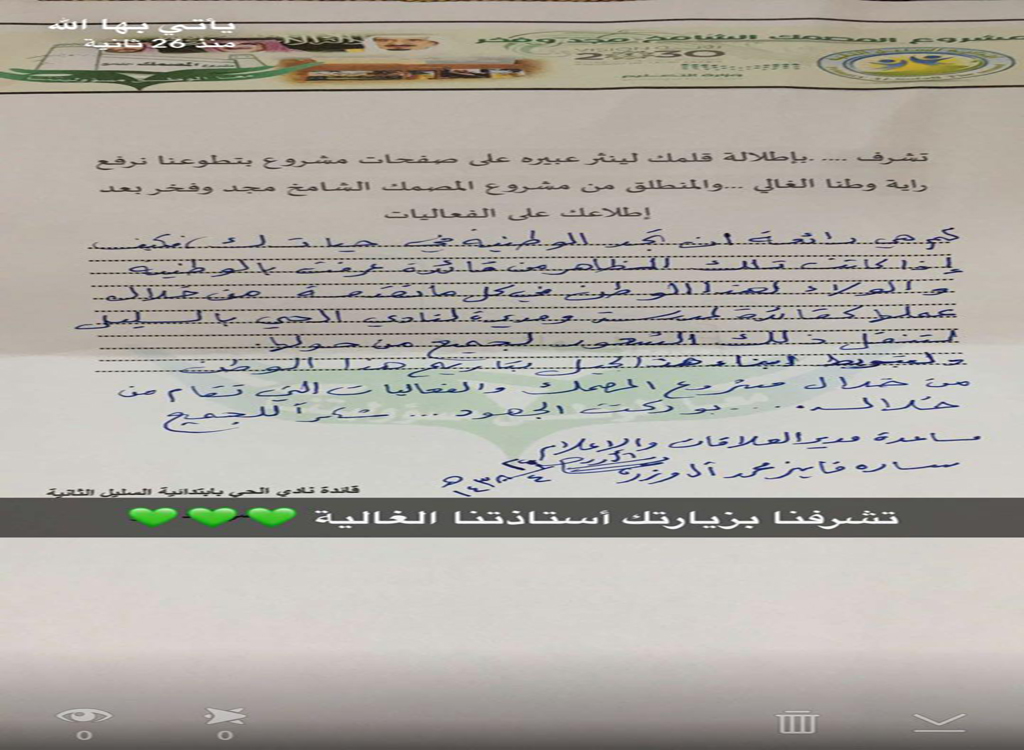 يأتي بها الله
منذ 26 ثانية
مشروع المصمك الشامخ مجد وفخر
2030
وزارة التعليم
تشرف .... .بإطلالة قلمك لينثر عبيره على صفحات مشروع بتطوعنا نرفع
راية وطنا الغالي ...والمنطلق من مشروع المصمك الشامخ مجد وفخر بعد
إطلاعك على الفعاليات
كم هي رائعة أن تجد الوطنية في حياتك فكيف
إذا كانت تلك المظاهر من قائدة عرفت بالوطنية
والولاء لهذا الوطن في كل ما تقدمه من خلال
عملها كقائدة لمدرسة ومديرة لنادي الحي بالسليل
لتنقل ذلك الشعور لجميع من حولها.
ولتربط أبناء هذا الجيل بتاريخ هذا الوطن
من خلال مشروع المصمك والفعاليات التي تقام من
خلاله..... بوركت الجهود... شكراً للجميع
مساعدة مدير العلاقات والإعلام
ساره فايز محمد آل
١٤٣٨ هـ
قائدة نادي الحي بابتدائية السليل الثانية
تشرفنا بزيارتك أستاذتنا الغالية 💚💚💚
0
0